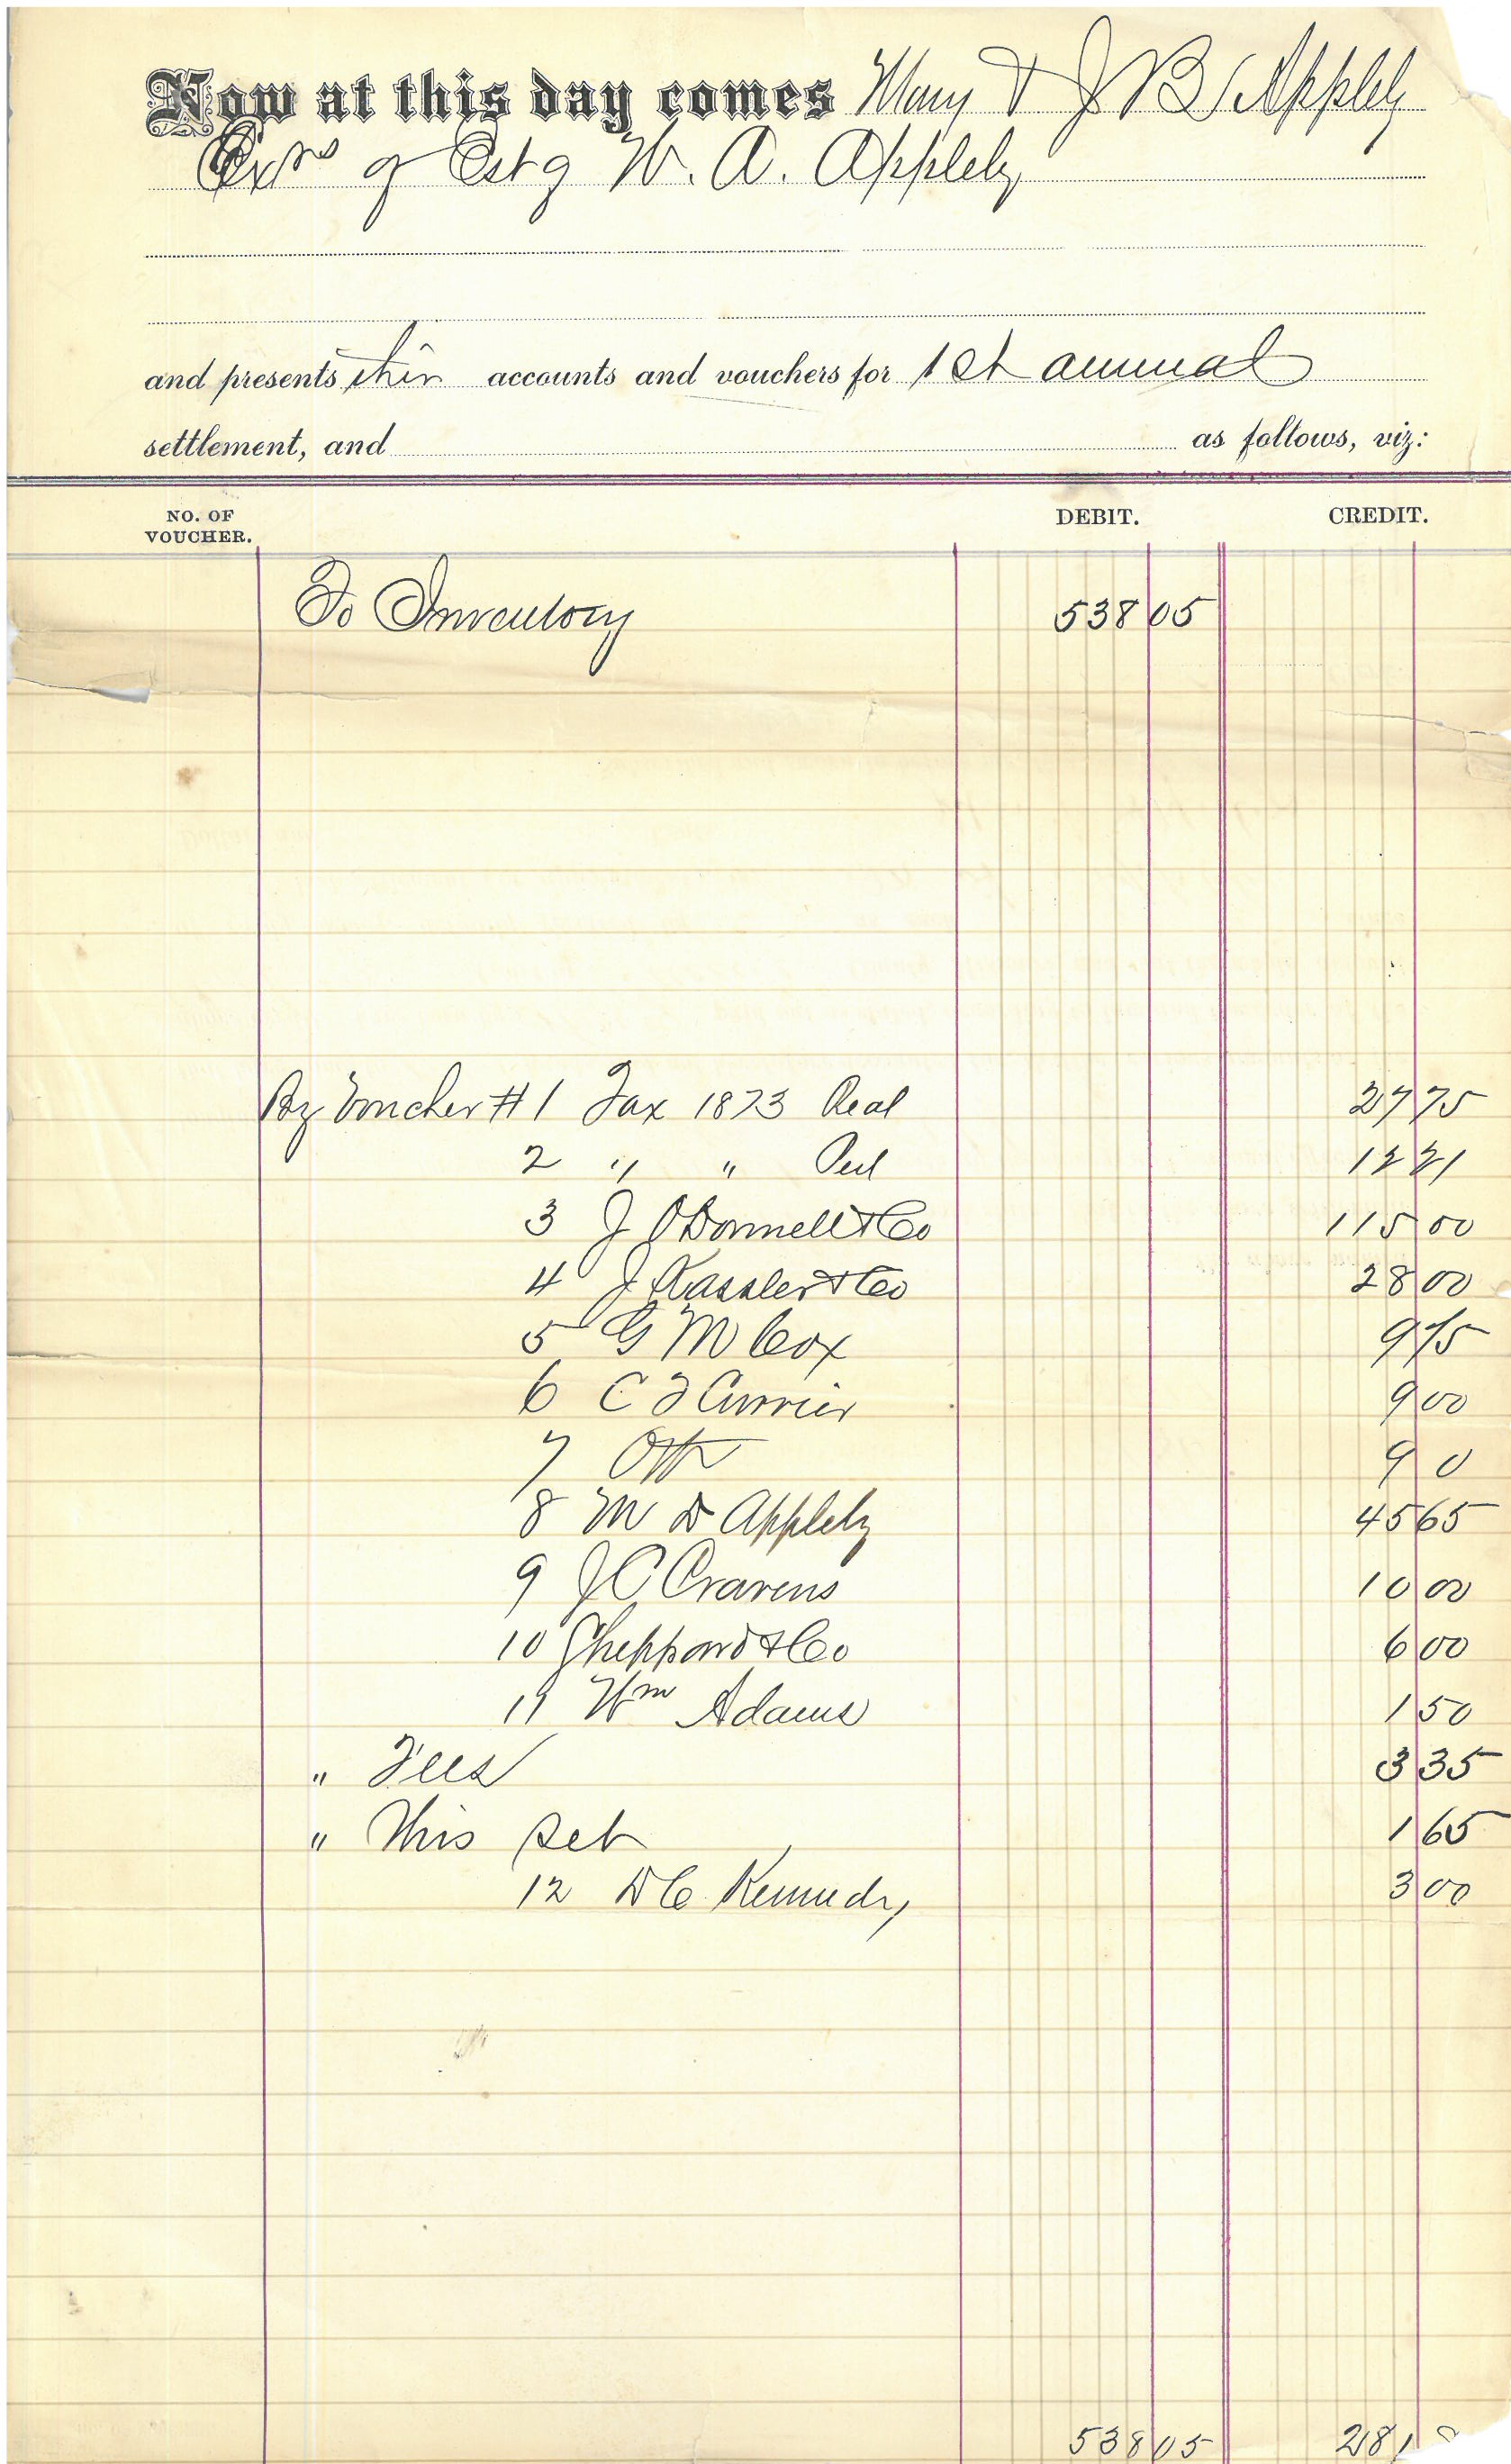 Now at this day comes Mary & J B Appleby
Exrs of Est of W. A. Appleby
and presents their accounts and vouchers for 1st annual
settlement, and as follows, viz:
NO. OF VOUCHER. DEBIT. CREDIT.
To Inventory 538 05
By Voucher # 1 Tax 1873 Real 27 75
2 " " Perl 12 21
3 J ODonnell & Co 115 00
4 J Kassler & Co 28 00
5 G M Cox 9 15
6 C F Currier 9 00
7 Ott 9 0
8 M D Appleby 45 65
9 J C Cravens 10 00
10 Sheppard & Co 6 00
11 Wm Adams 1 50
" Fees 3 35
" This Set 1 65
12 D C Kennedy 3 00
538 05 281